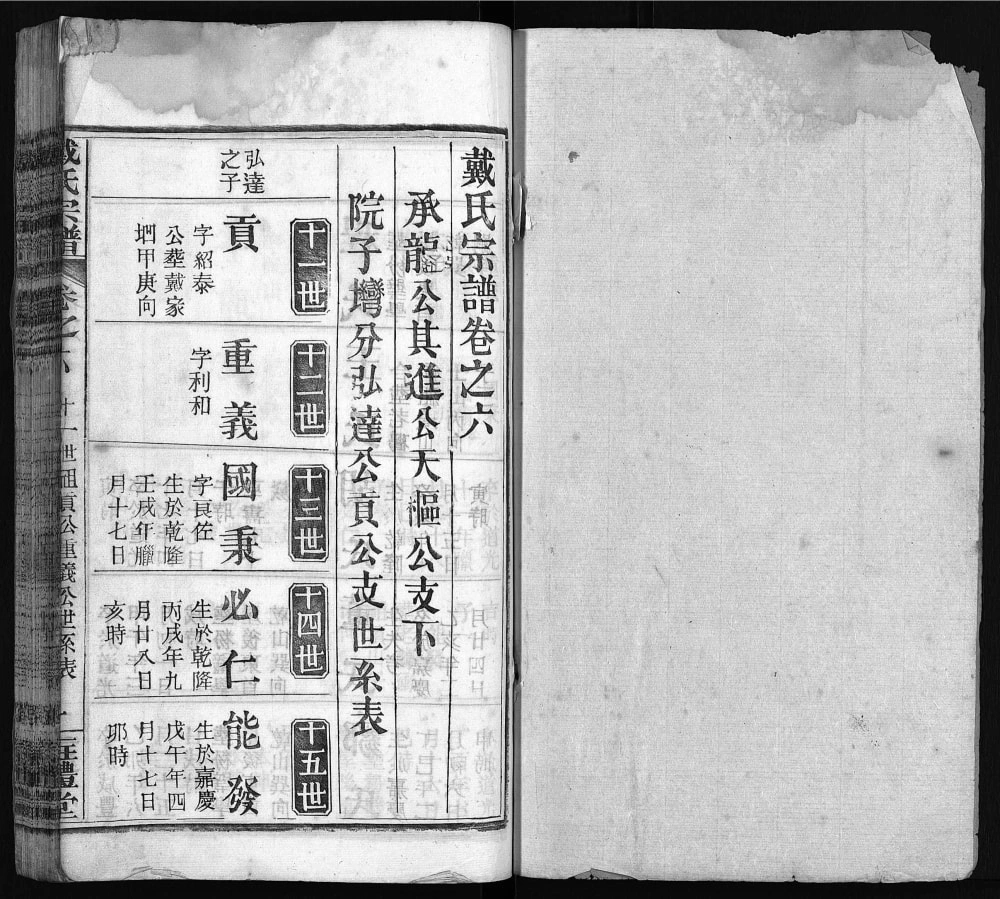 戴氏宗譜卷之六
承龍公其進公天樞公支下
院子塆分弘達公貢公支世系表
十一世
十二世
十三世
十四世
十五世
弘達
之子
貢
字紹泰
公塟戴家
甲庚向
重義
字利和
國秉
字良佐
生於乾隆
壬戌年臘
月十七日
必仁
生於乾隆
丙戌年九
月廿八日
亥時
能發
生於嘉慶
戊午年四
月十七日
卯時
戴氏宗譜
卷之六
十一世祖貢公重義公世系表
禮堂